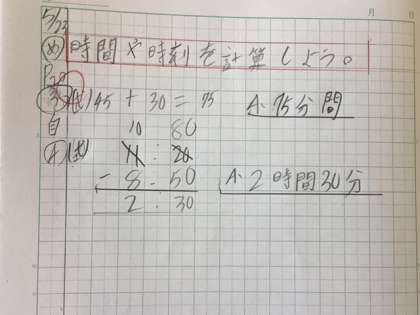 月 日
5/22
め 時間や時刻を計算しよう。
P20
③ 式)45 + 30 = 75 A. 75分間
自 10 80
④ 式) 11 : 20
- 8 : 50 A. 2時間30分
2 : 30